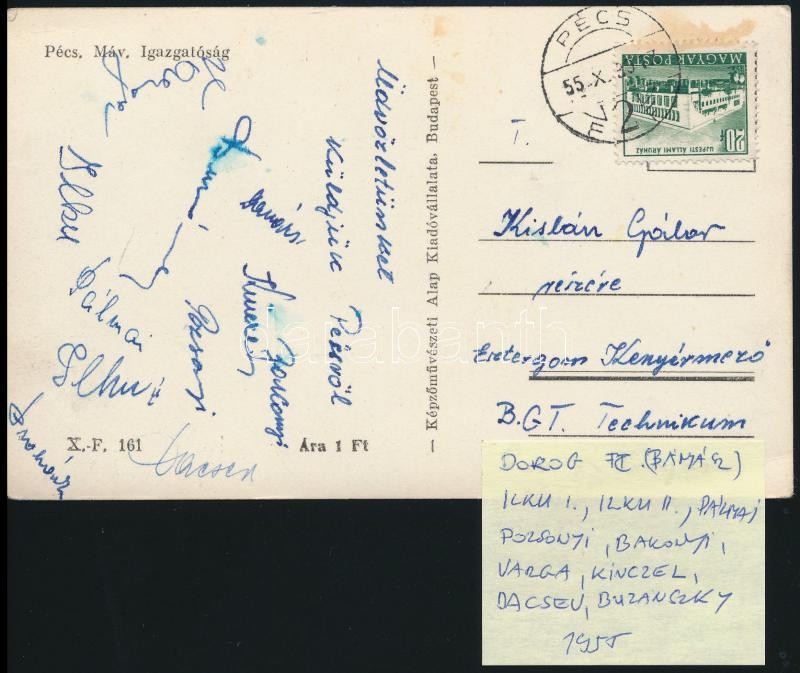 Pécs. Máv. Igazgatóság
Üdvözletünket
küldjük Pécsről
Ilku
Pálmai
Ilku
Pozsonyi
Kinczel
Bakonyi
Dacsev
X.-F. 161
Ára 1 Ft
— Képzőművészeti Alap Kiadóvállalata. Budapest —
PÉCS
55. X.
2
MAGYAR POSTA
UJPESTI ÁLLAMI ÁRUHÁZ
20f
T.
Kislán Gábor
részére
Esztergom Kenyérmező
B.G.T. Technikum
darabanth
DOROG FC. (BÁMÁSZ)
ILKU I., ILKU II., PÁLMAI
POZSONYI, BAKONYI,
VARGA, KINCZEL,
DACSEV, BUZÁNSZKY
1955